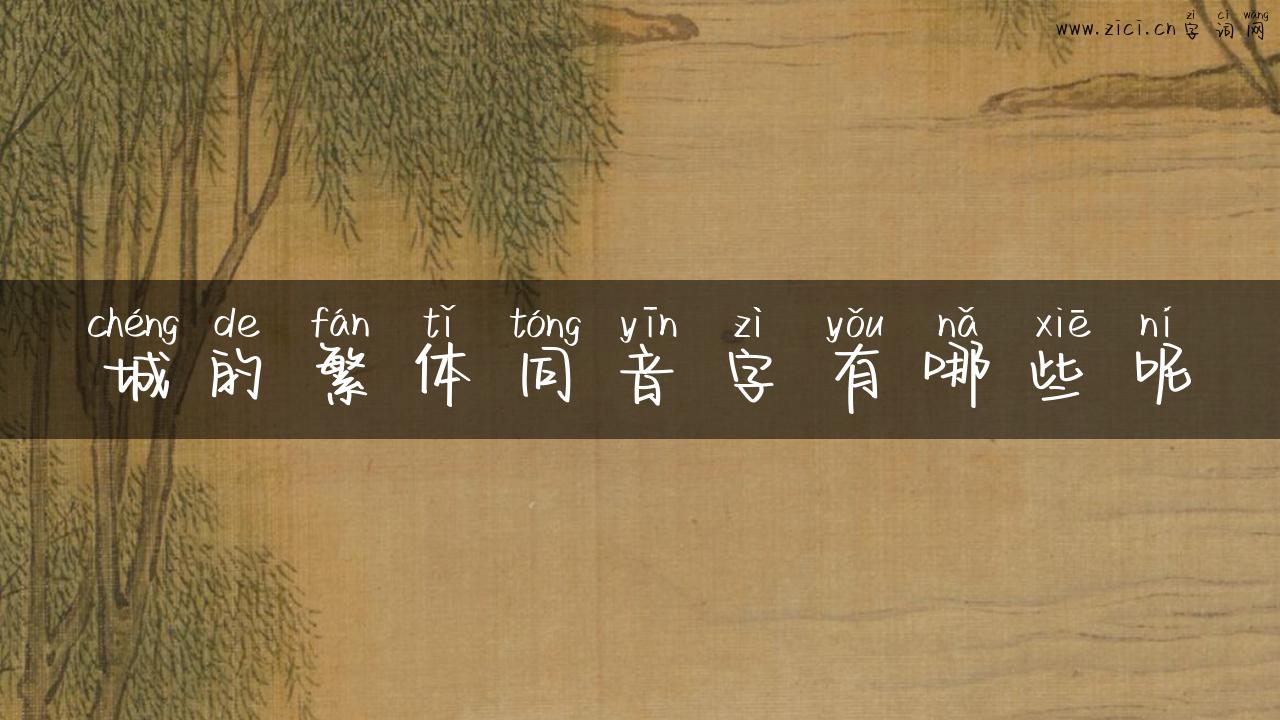 zì cí wǎng
www.zici.cn 字词网
chéng de fán tǐ tóng yīn zì yǒu nǎ xiē ní
城的繁体同音字有哪些呢